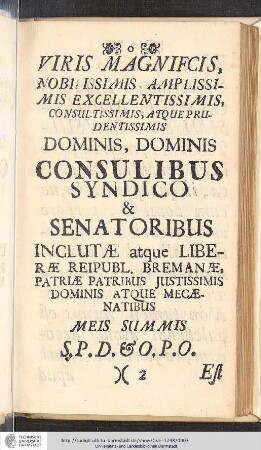 VIRIS MAGNIFCIS,
NOBILISSIMIS AMPLISSI-
MIS EXCELLENTISSIMIS,
CONSULTISSIMIS, ATQUE PRU-
DENTISSIMIS
DOMINIS, DOMINIS
CONSULIBUS
SYNDICO
&
SENATORIBUS
INCLUTÆ atque LIBE-
RÆ REIPUBL. BREMANÆ,
PATRIÆ PATRIBUS JUSTISSIMIS
DOMINIS ATQUE MECÆ-
NATIBUS
MEIS SUMMIS
S.P.D.&O.P.O.
)( 2 Eſt
TECHNISCHE
UNIVERSITÄT
DARMSTADT
Universitäts- und Landesbibliothek Darmstadt